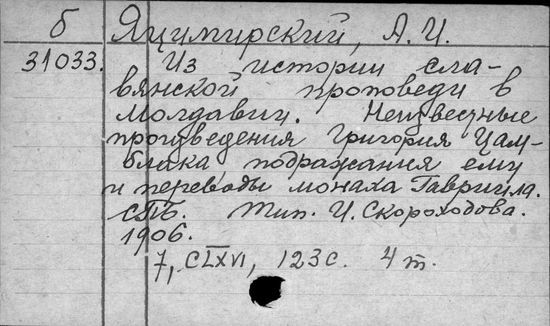 б Яцимирский, А. И.
31033. Из истории сла-
вянской проповеди в
Молдавии. Неизвестные
произведения Григория Цам-
блака, подражания ему
и переводы монаха Гавриила.
СПб. Тип. И. Скороходова.
1906.
7, CLXVI, 123 с. 4 т.